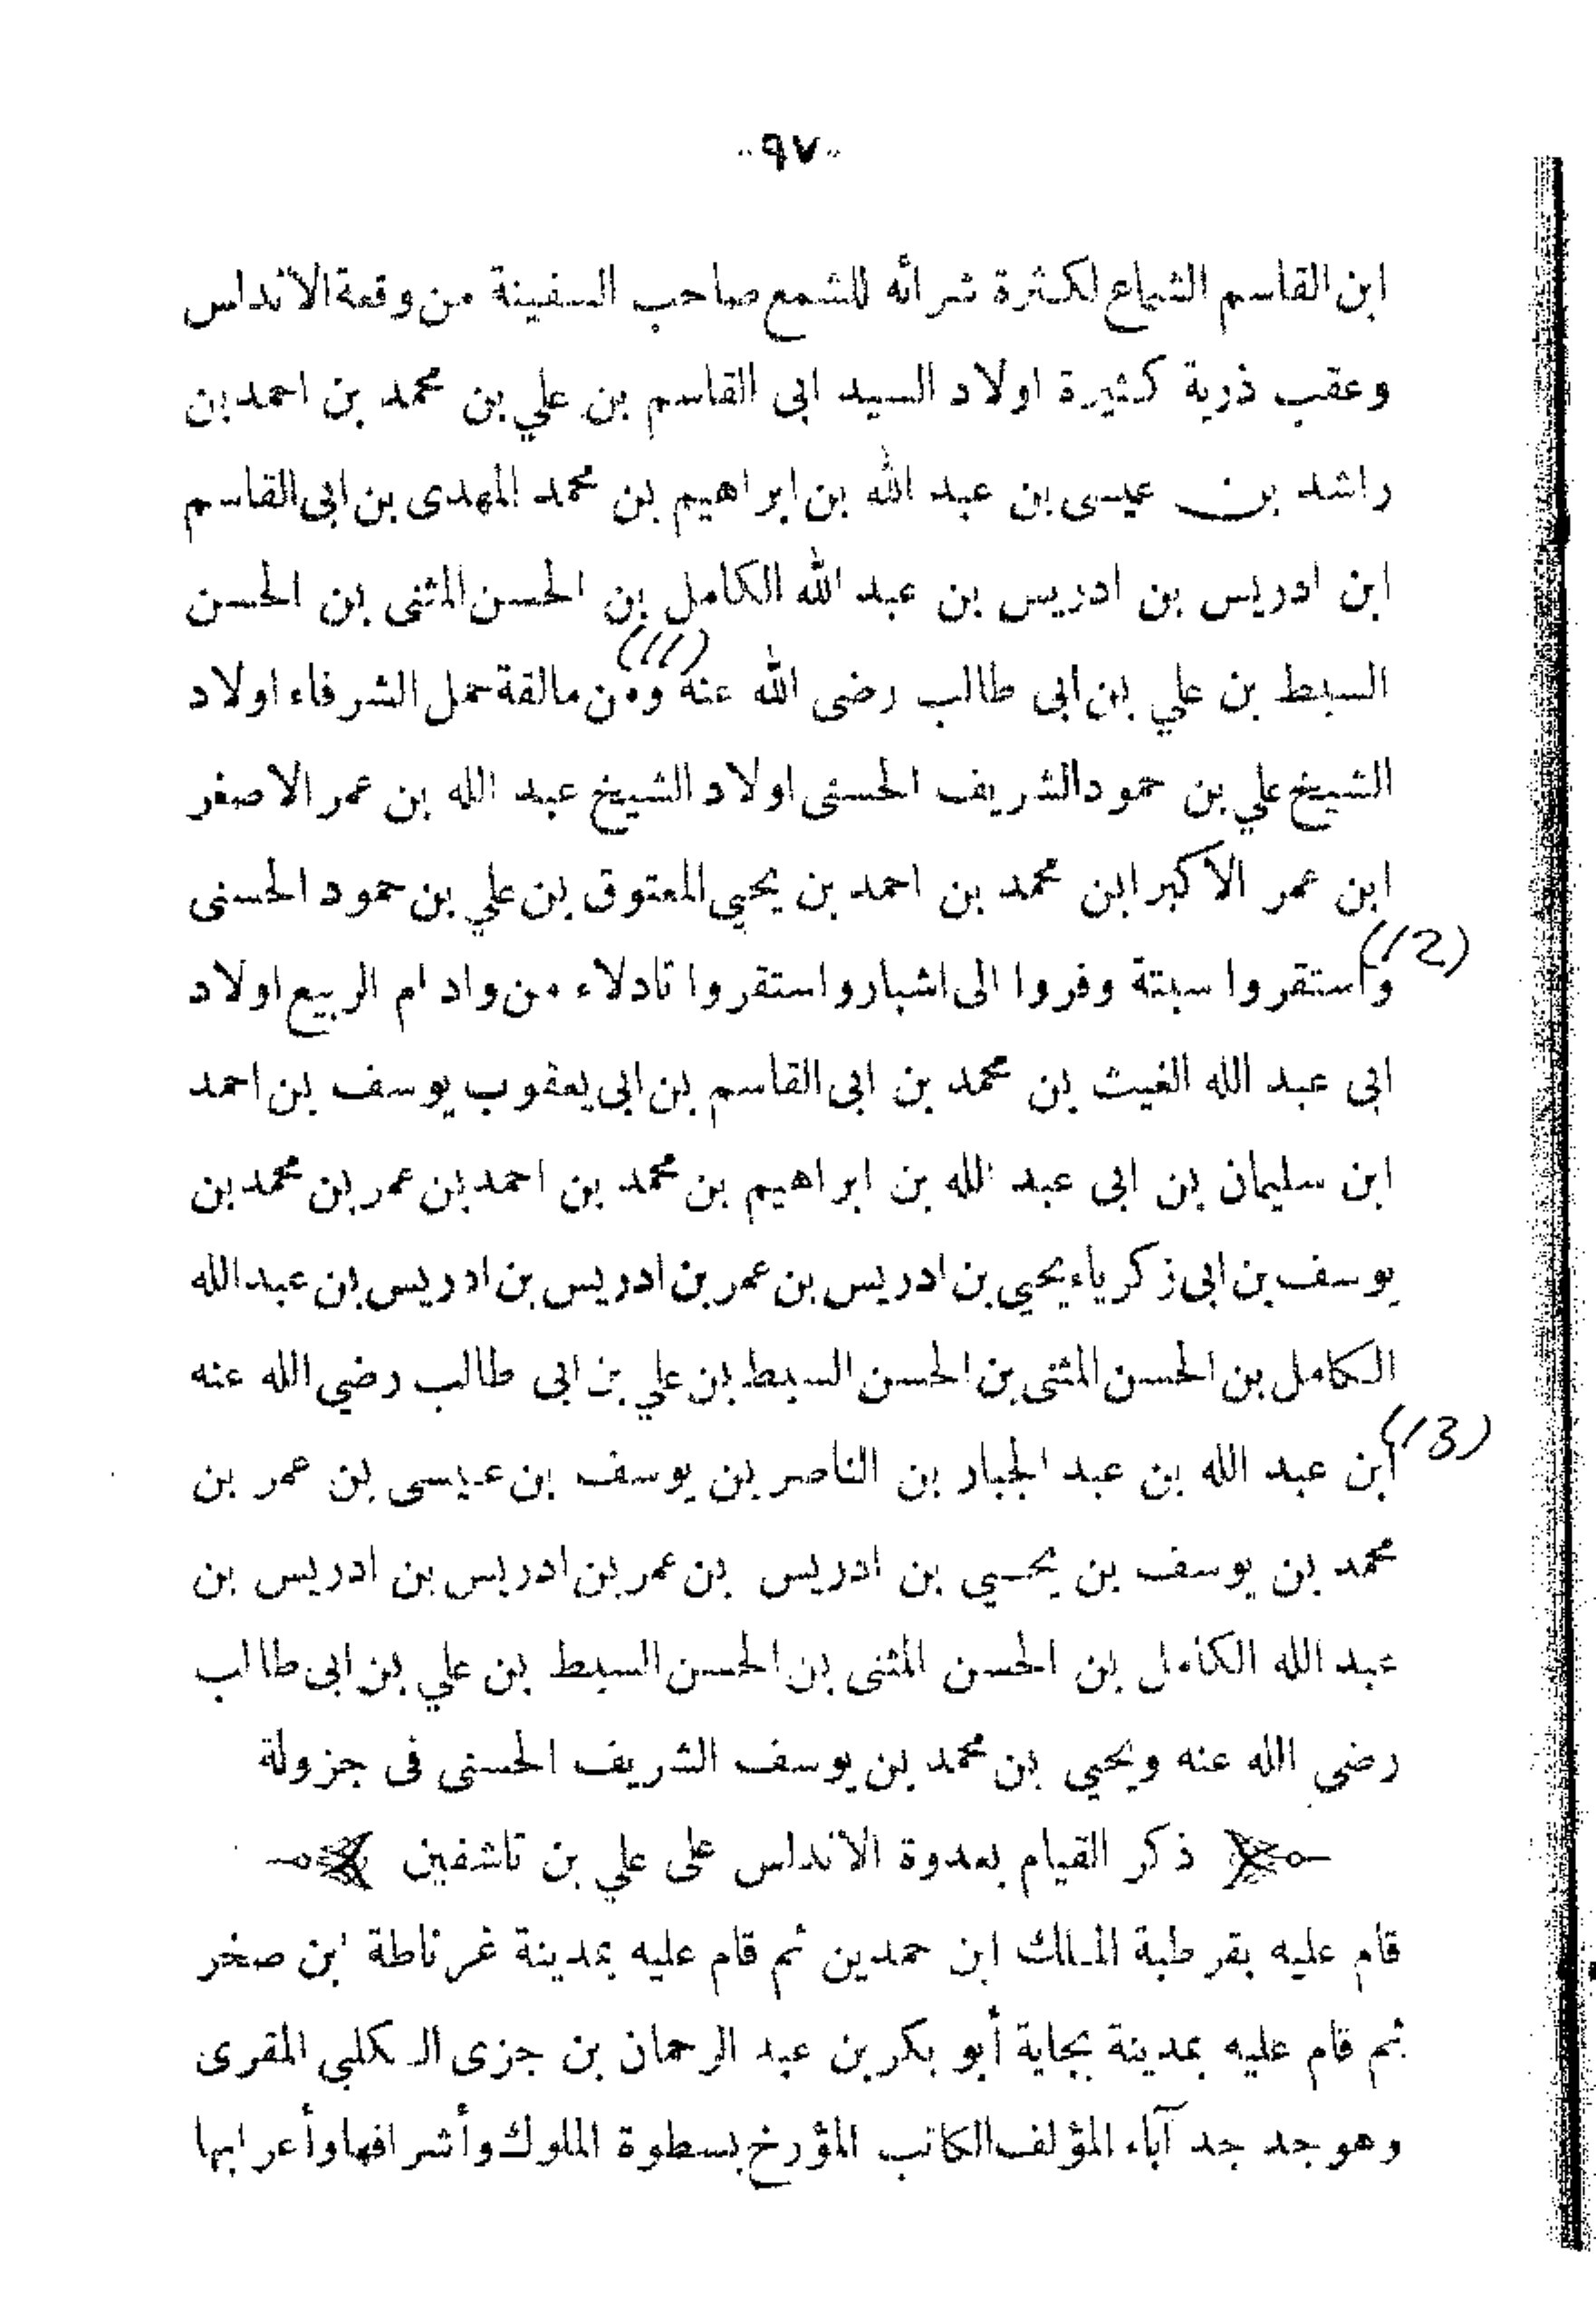 ٩٧
ابن القاسم الشماع لكثرة شرائه للشمع صاحب السفينة من وقعة الاندلس
وعقب ذرية كثيرة اولاد السيد ابى القاسم بن علي بن محمد بن احمد بن
راشد بن عيسى بن عبد الله بن ابراهيم بن محمد المهدى بن ابى القاسم
ابن ادريس بن ادريس بن عبد الله الكامل بن الحسن المثنى بن الحسن
(11)
السبط بن علي بن ابى طالب رضى الله عنه ومن مالقة حمل الشرفاء اولاد
الشيخ علي بن حمود الشريف الحسنى اولاد الشيخ عبد الله بن عمر الاصغر
ابن عمر الاكبر ابن محمد بن احمد بن يحيى المعتوق بن علي بن حمود الحسنى
(12)
واستقروا سبتة وفروا الى اشبار واستقروا تادلاء من واد ام الربيع اولاد
ابى عبد الله الغيث بن محمد بن ابى القاسم بن ابى يعقوب يوسف بن احمد
ابن سليمان بن ابى عبد الله بن ابراهيم بن محمد بن احمد بن عمر بن محمد بن
يوسف بن ابى زكرياء يحيى بن ادريس بن عمر بن ادريس بن ادريس بن عبد الله
الكامل بن الحسن المثنى بن الحسن السبط بن علي بن ابى طالب رضي الله عنه
(13)
ابن عبد الله بن عبد الجبار بن الناصر بن يوسف بن عيسى بن عمر بن
محمد بن يوسف بن يحيي بن ادريس بن عمر بن ادريس بن ادريس بن
عبد الله الكامل بن الحسن المثنى بن الحسن السبط بن علي بن ابى طالب
رضى الله عنه ويحيي بن محمد بن يوسف الشريف الحسنى فى جزولة
ذكر القيام بعدوة الاندلس على علي بن تاشفين
قام عليه بقرطبة الملك ابن حمدين ثم قام عليه بمدينة غرناطة ابن صخر
ثم قام عليه بمدينة بجاية أبو بكر بن عبد الرحمان بن جزى الكلبي المقرى
وهو جد جد آباء المؤلف الكاتب المؤرخ بسطوة الملوك وأشرافها وأعرابها